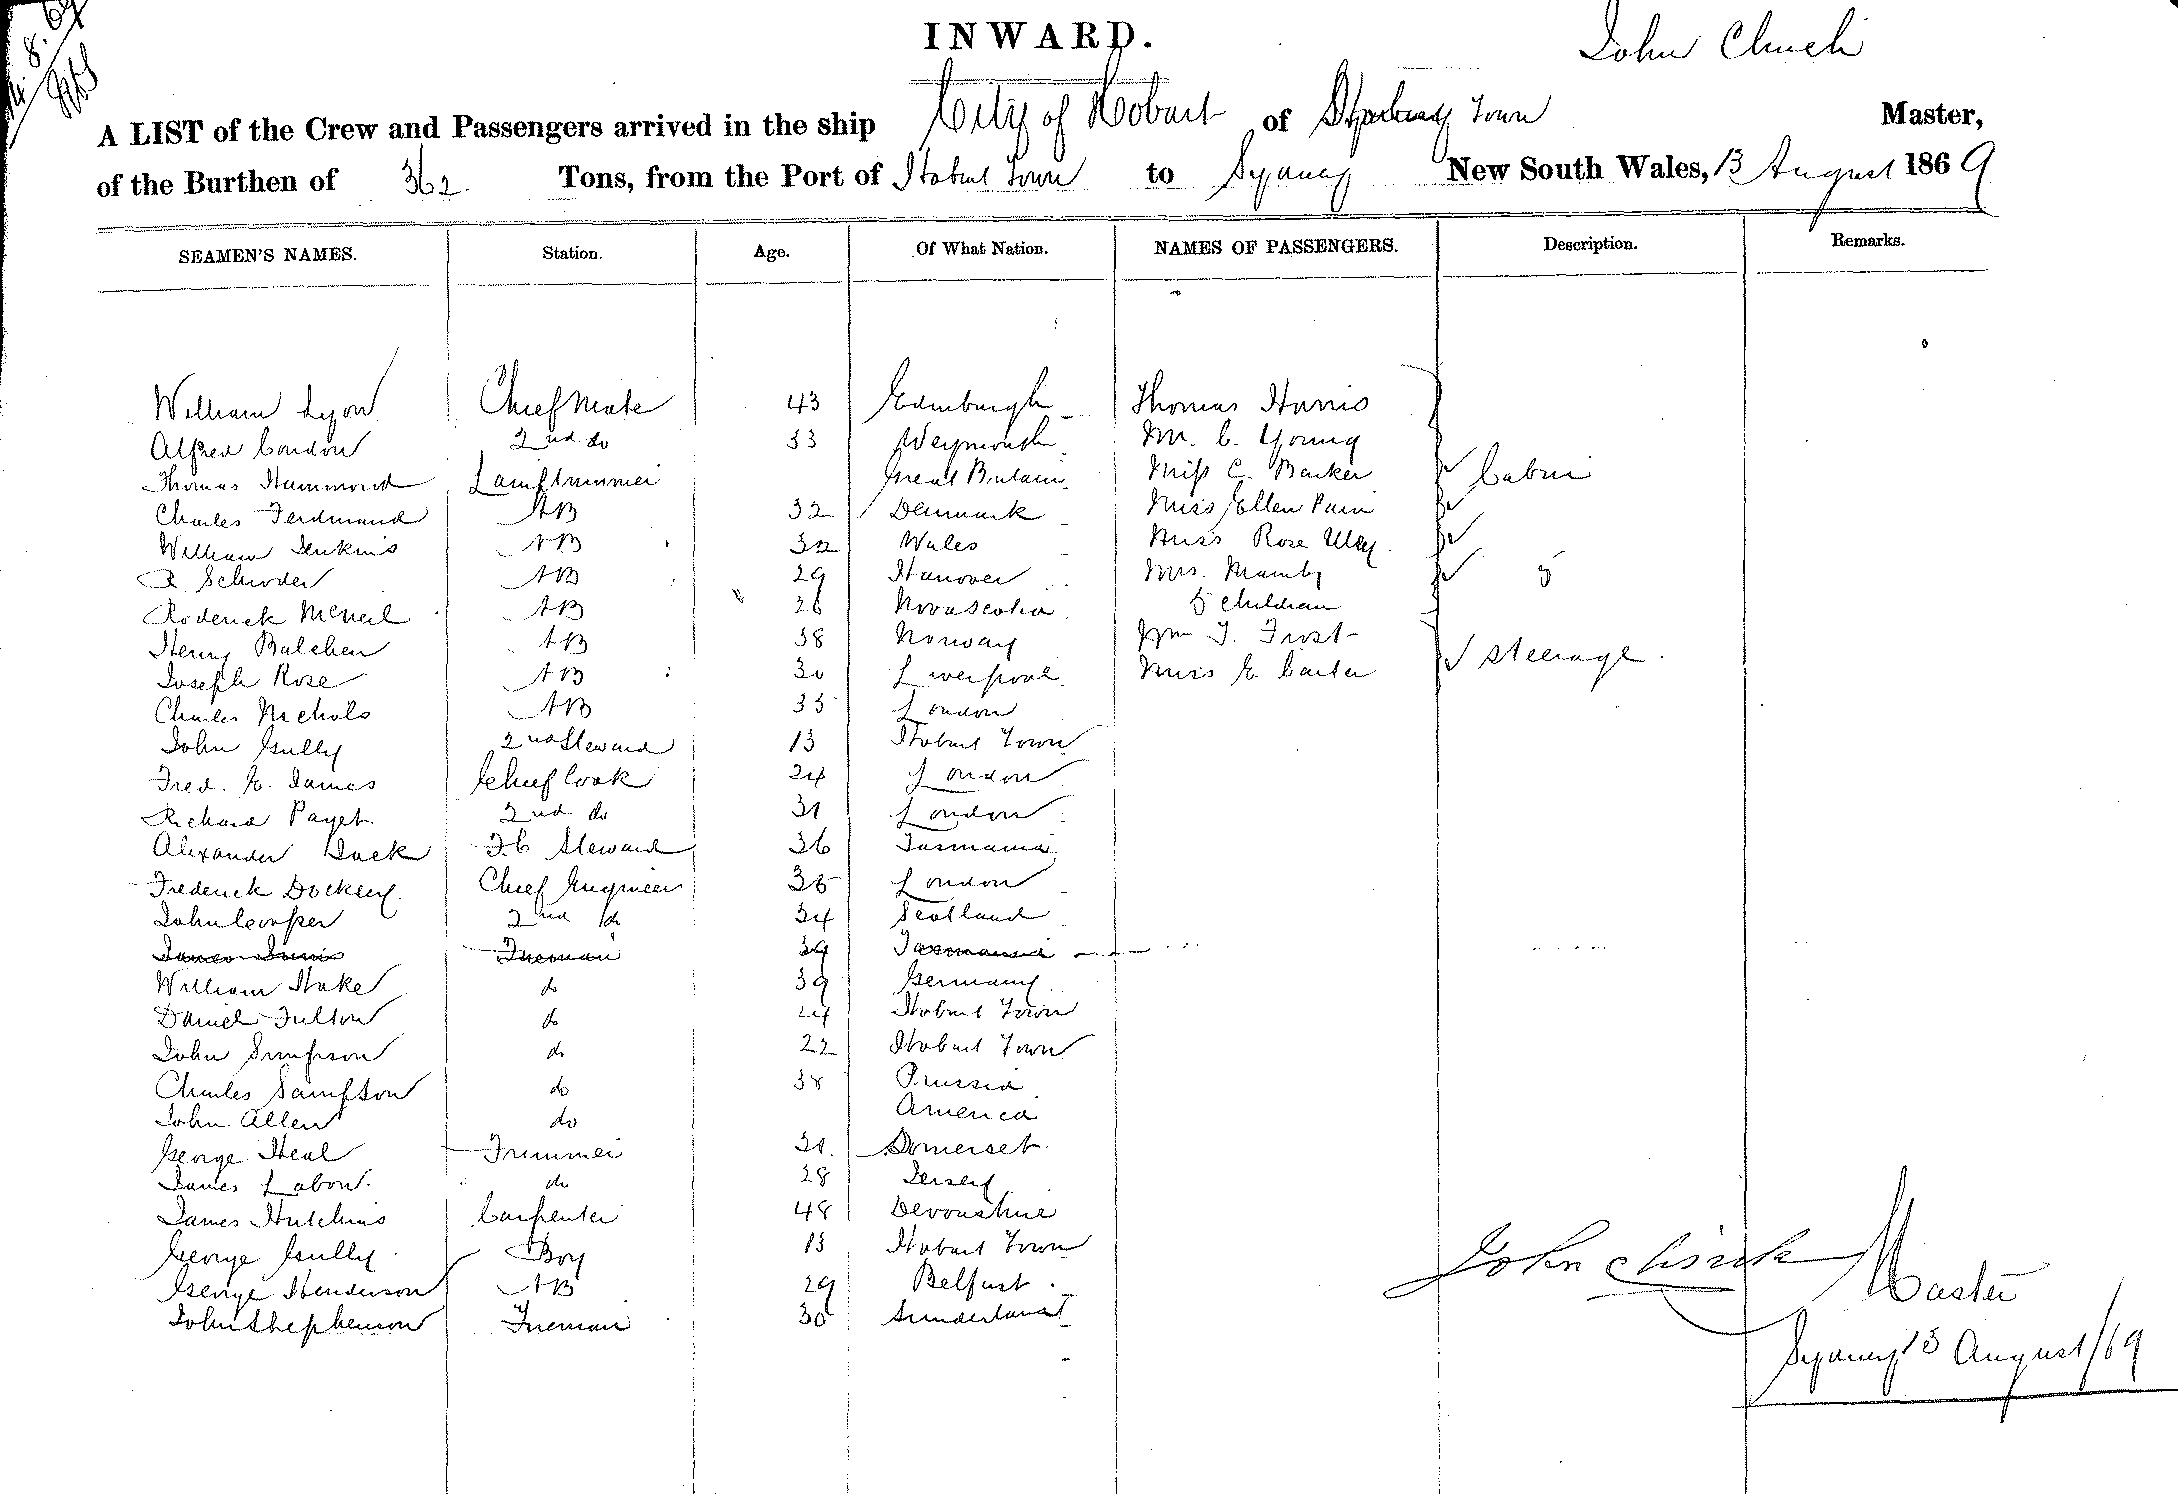 INWARD.
John Clinch
A LIST of the Crew and Passengers arrived in the ship City of Hobart of Town Master,
of the Burthen of 362 Tons, from the Port of Hobart Town to Sydney New South Wales, 13 August 1869
SEAMEN'S NAMES. Station. Age. Of What Nation. NAMES OF PASSENGERS. Description. Remarks.
William Lyon Chief Mate 43 Edinburgh Thomas Harris
Alfred Condon 2nd do 33 Weymouth Mr. C. Young
Thomas Hammond Lamptrimmer Great Britain Miss C. Barker Cabin
Charles Ferdinand AB 32 Denmark Miss Ellen Pain
William Jenkins AB 32 Wales Miss Rose
Schroder AB 29 Hanover Mrs. 5
Roderick McNeil AB 26 Nova Scotia 5 children
Henry Balchen AB 38 Norway Wm T. Frost
Joseph Rose AB 30 Liverpool Miss E. Carter Steerage
Charles Nichols AB 33 London
John Gully 2nd Steward 13 Hobart Town
Fred. G. James Chief Cook 24 London
Richard Payet 2nd do 31 London
Alexander Duck F.C Steward 36 Tasmania
Frederick Dockery Chief Engineer 35 London
John Cooper 2nd do 34 Scotland
James Fireman 39 Tasmania
William Hake do 39 Germany
Daniel Fulton do 24 Hobart Town
John Simpson do 22 Hobart Town
Charles Sampson do 38 Prussia
John Allen do America
George Heal Trimmer 31 Somerset
James Labon do 28 Jersey
James Hutchins Carpenter 48 Devonshire
George Gully Boy 13 Hobart Town
George Henderson AB 29 Belfast
John Shephenson Fireman 30 Sunderland
John Clinch Master
Sydney 13 August/69